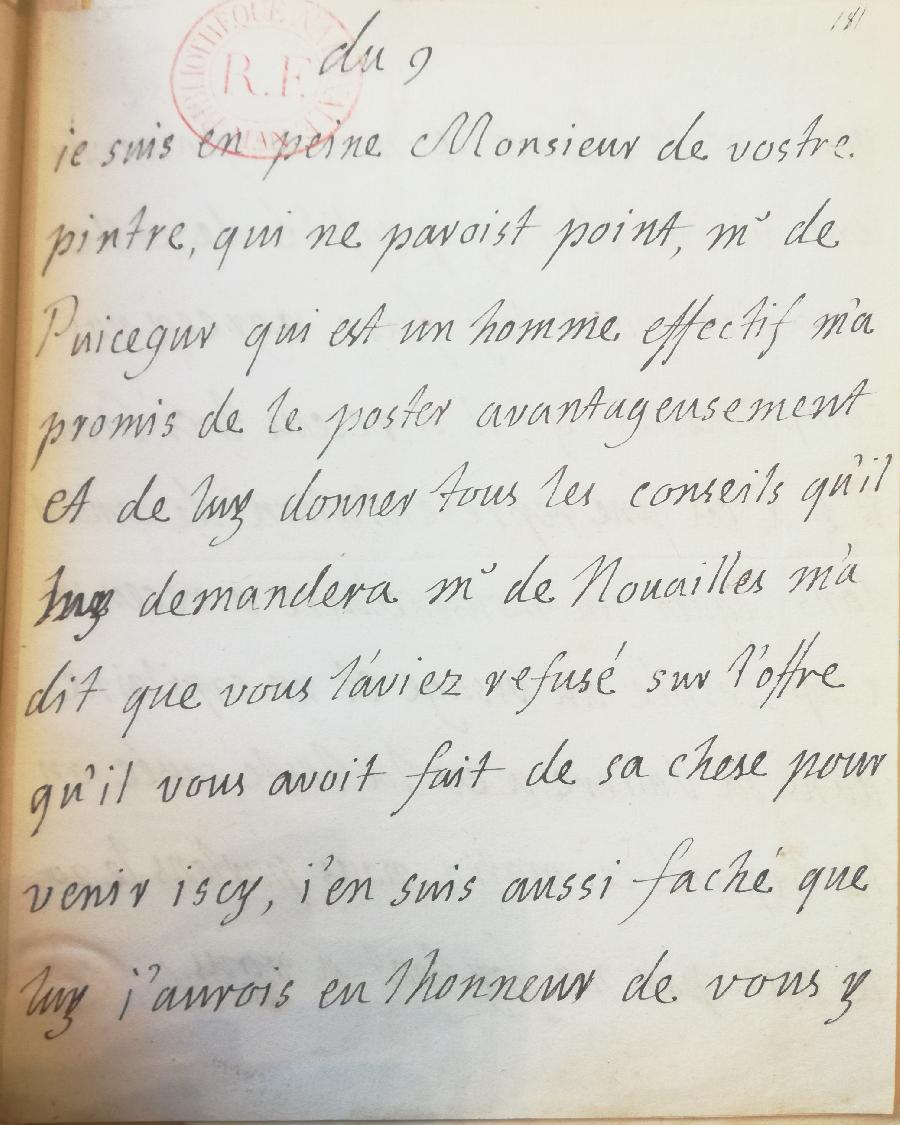 181
du 9
BIBLIOTHEQUE NATIONALE
R.F.
ie suis en peine Monsieur de vostre
pintre, qui ne paroist point, mr de
Puicegur qui est un homme effectif m'a
promis de le poster avantageusement
et de luy donner tous les conseils qu'il
luy demandera mr de Nouailles m'a
dit que vous l'aviez refusé sur l'offre
qu'il vous avoit fait de sa chese pour
venir iscy, i'en suis aussi faché que
luy j'aurois eu lhonneur de vous y